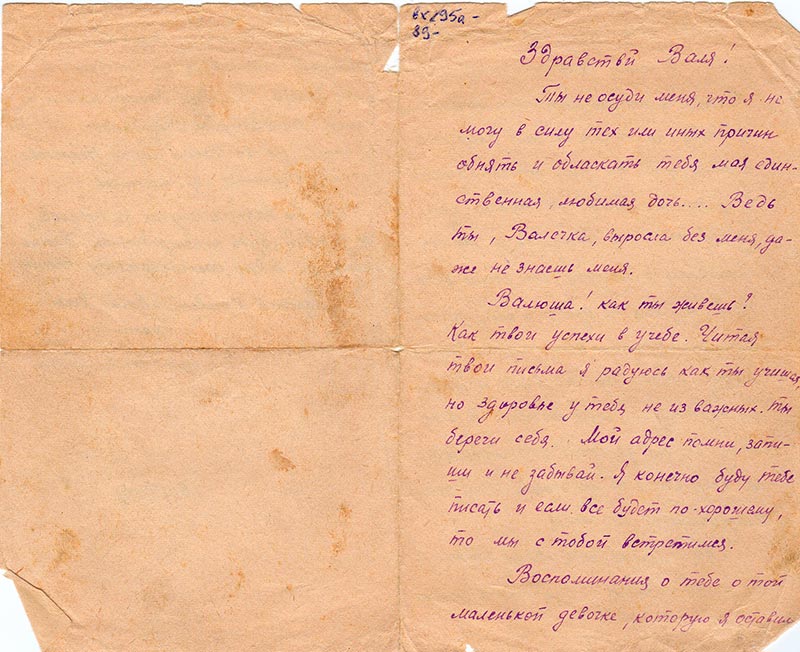 вх 295а-
89-
Здравствй Валя!
Ты не осуди меня, что я не
могу в силу тех или иных причин
обнять и обласкать тебя мая един-
ственная, любимая дочь.... Ведь
ты, Валечка, выросла без меня, да-
же не знаешь меня.
Валюша! как ты живешь?
Как твои успехи в учебе. Читая
твои письма я радуюсь как ты учишся,
но здоровье у тебя не из важных. ты
береги себя. Мой адрес помни, запи-
ши и не забывай. Я конечно буду тебе
писать и если все будет по-хорошему,
то мы с тобой встретимся.
Воспоминания о тебе о той
маленькой девочке, которую я оставил